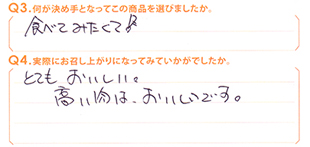 Q3.何が決め手となってこの商品を選びましたか。
食べてみたくて
Q4.実際にお召し上がりになってみていかがでしたか。
とてもおいしい。
高い肉は、おいしいです。